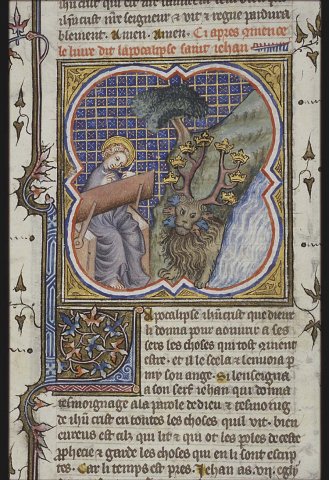 ihũcrist nr̃e seigneur & vit & regne pardura
blement. Amen. Amen. Ci apres
le liure dit lapocalipse saint iehan
Apocalipse ihũcrist que dieu
li donna pour a ses
sers les choses qui tost
estre. et il le seela & lenuoia p
my son ange. Si lenseigna
a son serf iehan qui donna
tesmoignage a la parole de dieu & tesmoing
de ihũ crist en toutes les choses quil vit. bien
eureus est cilz qui lit & qui ot les poles de ceste
prophecie & garde les choses qui en li sont escrip
tes. Car li temps est pres. Jehan as .vij. egly